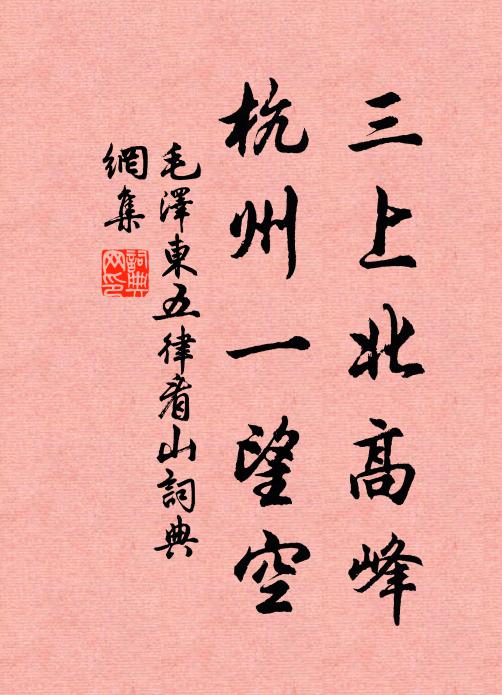 三上北高峰
杭州一望空
毛澤東五律看山詞典
網集
詞典
网印